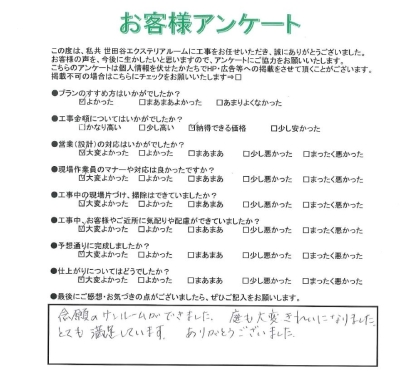 お客様アンケート
この度は、私共 世田谷エクステリアルームに工事をお任せいただき、誠にありがとうございました。
お客様の声を、今後に生かしたいと思いますので、アンケートにご協力をお願いします。
こちらのアンケートは個人情報を伏せたかたちでHP・広告等への掲載をさせて頂くことがございます。
掲載不可の場合はこちらにチェックをお願いいたします⇒□
●プランのすすめ方はいかがでしたか？
☑よかった □まあまあよかった □あまりよくなかった
●工事金額についてはいかがでしたか？
□かなり高い □少し高い ☑納得できる価格 □少し安かった
●営業（設計）の対応はいかがでしたか？
☑大変よかった □よかった □まあまあ □少し悪かった □まったく悪かった
●現場作業員のマナーや対応は良かったですか？
☑大変よかった □よかった □まあまあ □少し悪かった □まったく悪かった
●工事中の現場片づけ、掃除はできていましたか？
☑大変よかった □よかった □まあまあ □少し悪かった □まったく悪かった
●工事中、お客様やご近所に気配りや配慮ができていましたか？
☑大変よかった □よかった □まあまあ □少し悪かった □まったく悪かった
●予想通りに完成しましたか？
☑大変よかった □よかった □まあまあ □少し悪かった □まったく悪かった
●仕上がりについてはどうでしたか？
☑大変よかった □よかった □まあまあ □少し悪かった □まったく悪かった
●最後にご感想・お気づきの点がございましたら、ぜひご記入をお願いします。
念願のサンルームができました。 庭も大変きれいになりました
とても満足しています。 ありがとうございました。